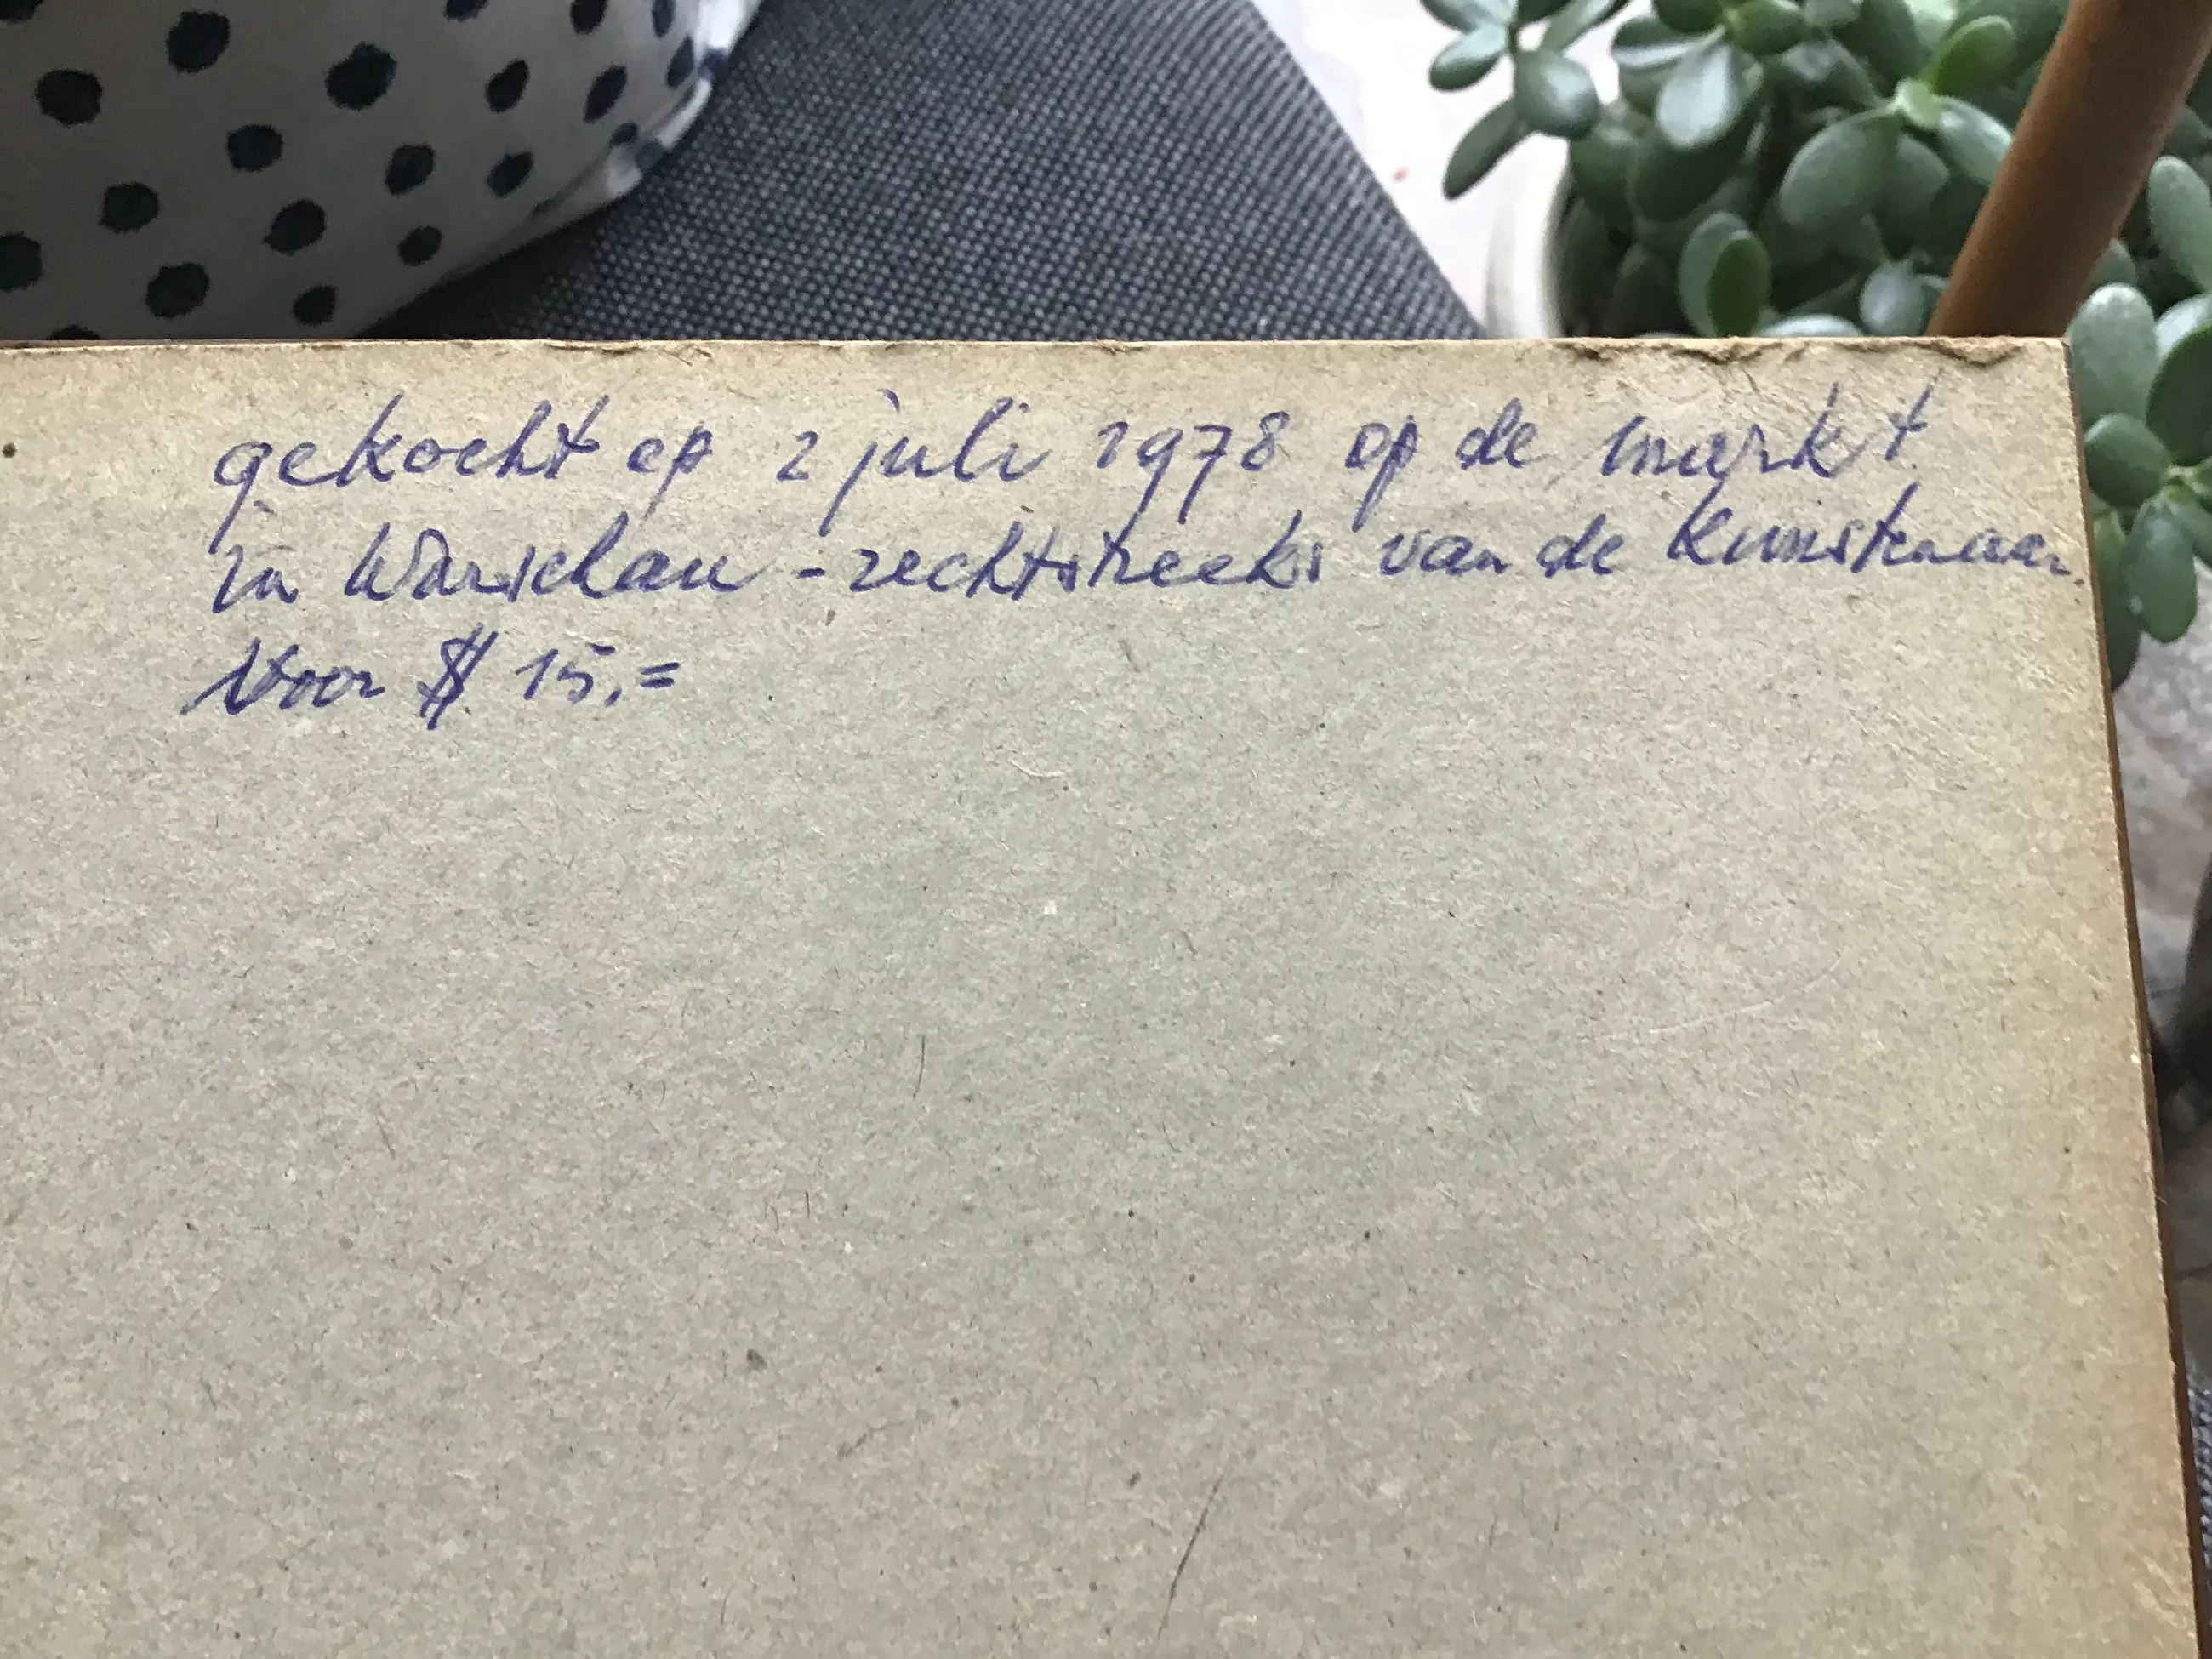 gekocht op 2 juli 1978 op de markt
in Warschau - rechtstreeks van de Kunstenaar.
Voor $ 15,=